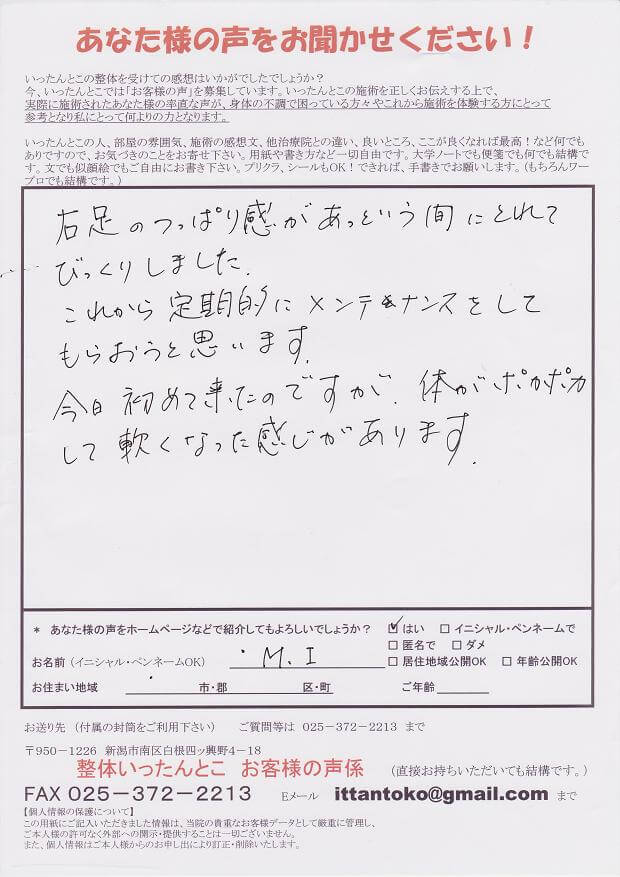 あなた様の声をお聞かせください！
いったんとこの整体を受けての感想はいかがでしたでしょうか？
今、いったんとこでは「お客様の声」を募集しています。いったんとこの施術を正しくお伝えする上で、
実際に施術されたあなた様の率直な声が、身体の不調で困っている方々やこれから施術を体験する方にとって
参考となり私にとって何よりの力となります。
いったんとこの人、部屋の雰囲気、施術の感想文、他治療院との違い、良いところ、ここが良くなれば最高！など何でも
ありですので、お気づきのことをお寄せ下さい。用紙や書き方など一切自由です。大学ノートでも便箋でも何でも結構で
す。文でも似顔絵でもご自由にお書き下さい。プリクラ、シールもOK！できれば、手書きでお願いします。（もちろんワー
プロでも結構です。）
右足のつっぱり感があっという間にとれて
びっくりしました.
これから定期的にメンテナンスをして
もらおうと思います.
今日初めて来たのですが、体がポカポカ
して軟くなった感じがあります.
* あなた様の声をホームページなどで紹介してもよろしいでしょうか？ ☑はい □イニシャル・ペンネームで
□匿名で □ダメ
お名前（イニシャル・ペンネームOK） M.I □居住地域公開OK □年齢公開OK
お住まい地域 市・郡 区・町 ご年齢
お送り先 （付属の封筒をご利用下さい） ご質問等は 025－372－2213 まで
〒950－1226 新潟市南区白根四ッ興野4－18
整体いったんとこ お客様の声係 （直接お持ちいただいても結構です。）
FAX 025－372－2213 Eメール ittantoko@gmail.com まで
【個人情報の保護について】
この用紙にご記入いただきました情報は、当院の貴重なお客様データとして厳重に管理し、
ご本人様の許可なく外部への開示・提供することは一切ございません。
また、個人情報はご本人様からのお申し出により訂正・削除いたします。